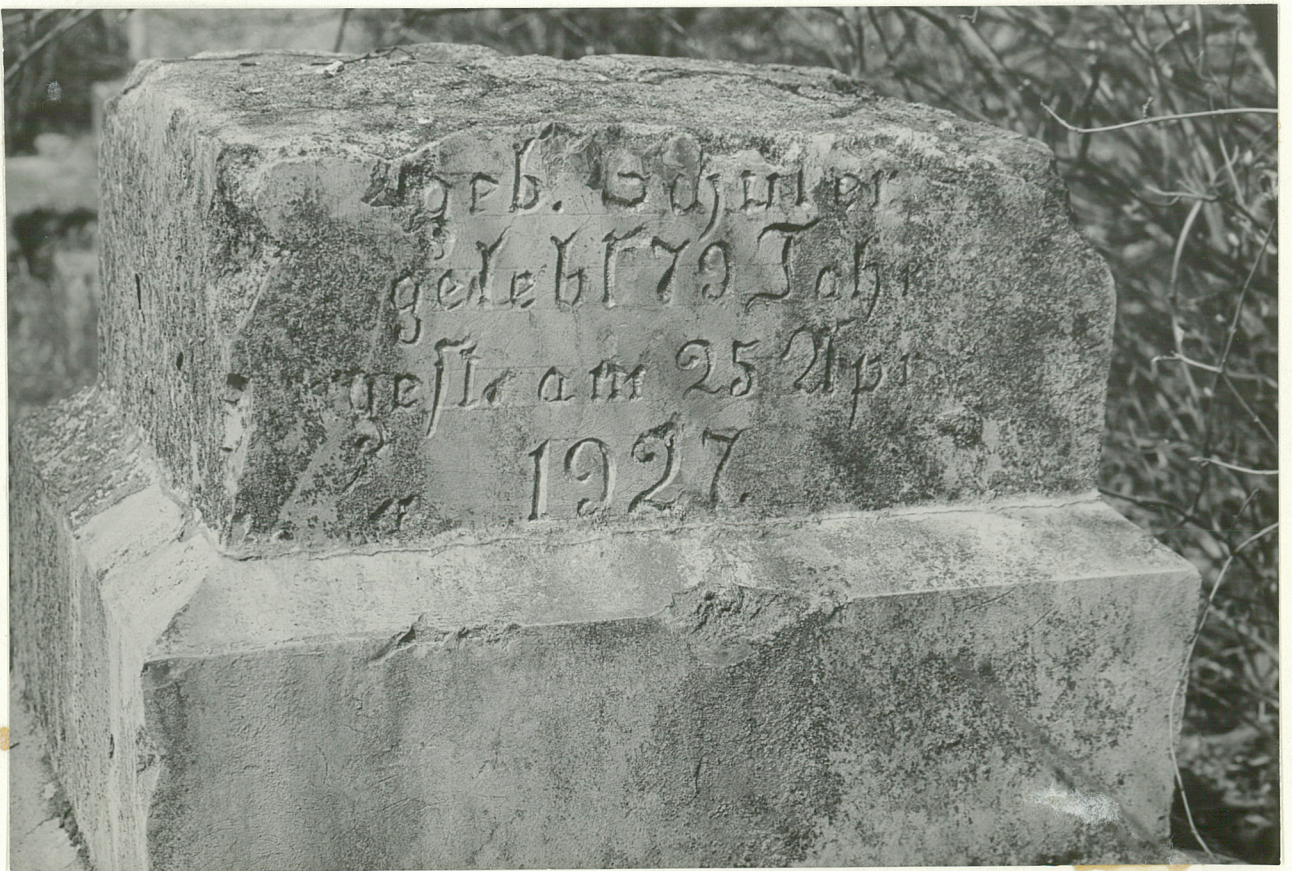 geb. Schuler
gelebt 79 Jahr
gest. am 25 Apr
1927.